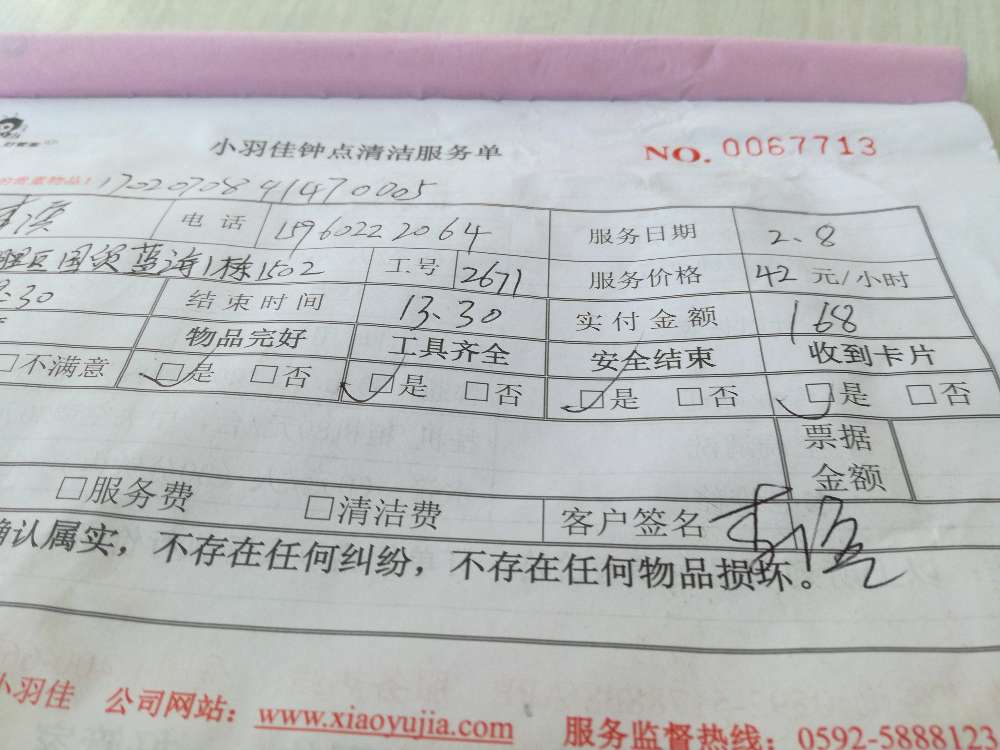 小羽佳钟点清洁服务单 NO. 0067713
的贵重物品! 1702070841470005
电话 15960222064 服务日期 2.8
国贸蓝海1栋1502 工号 2671 服务价格 42 元/小时
9.30 结束时间 13.30 实付金额 168
物品完好 工具齐全 安全结束 收到卡片
□不满意 □是 □否 □是 □否 □是 □否 □是 □否
票据
金额
□服务费 □清洁费 客户签名
确认属实，不存在任何纠纷，不存在任何物品损坏。
小羽佳 公司网站：www.xiaoyujia.com 服务监督热线：0592-5888123